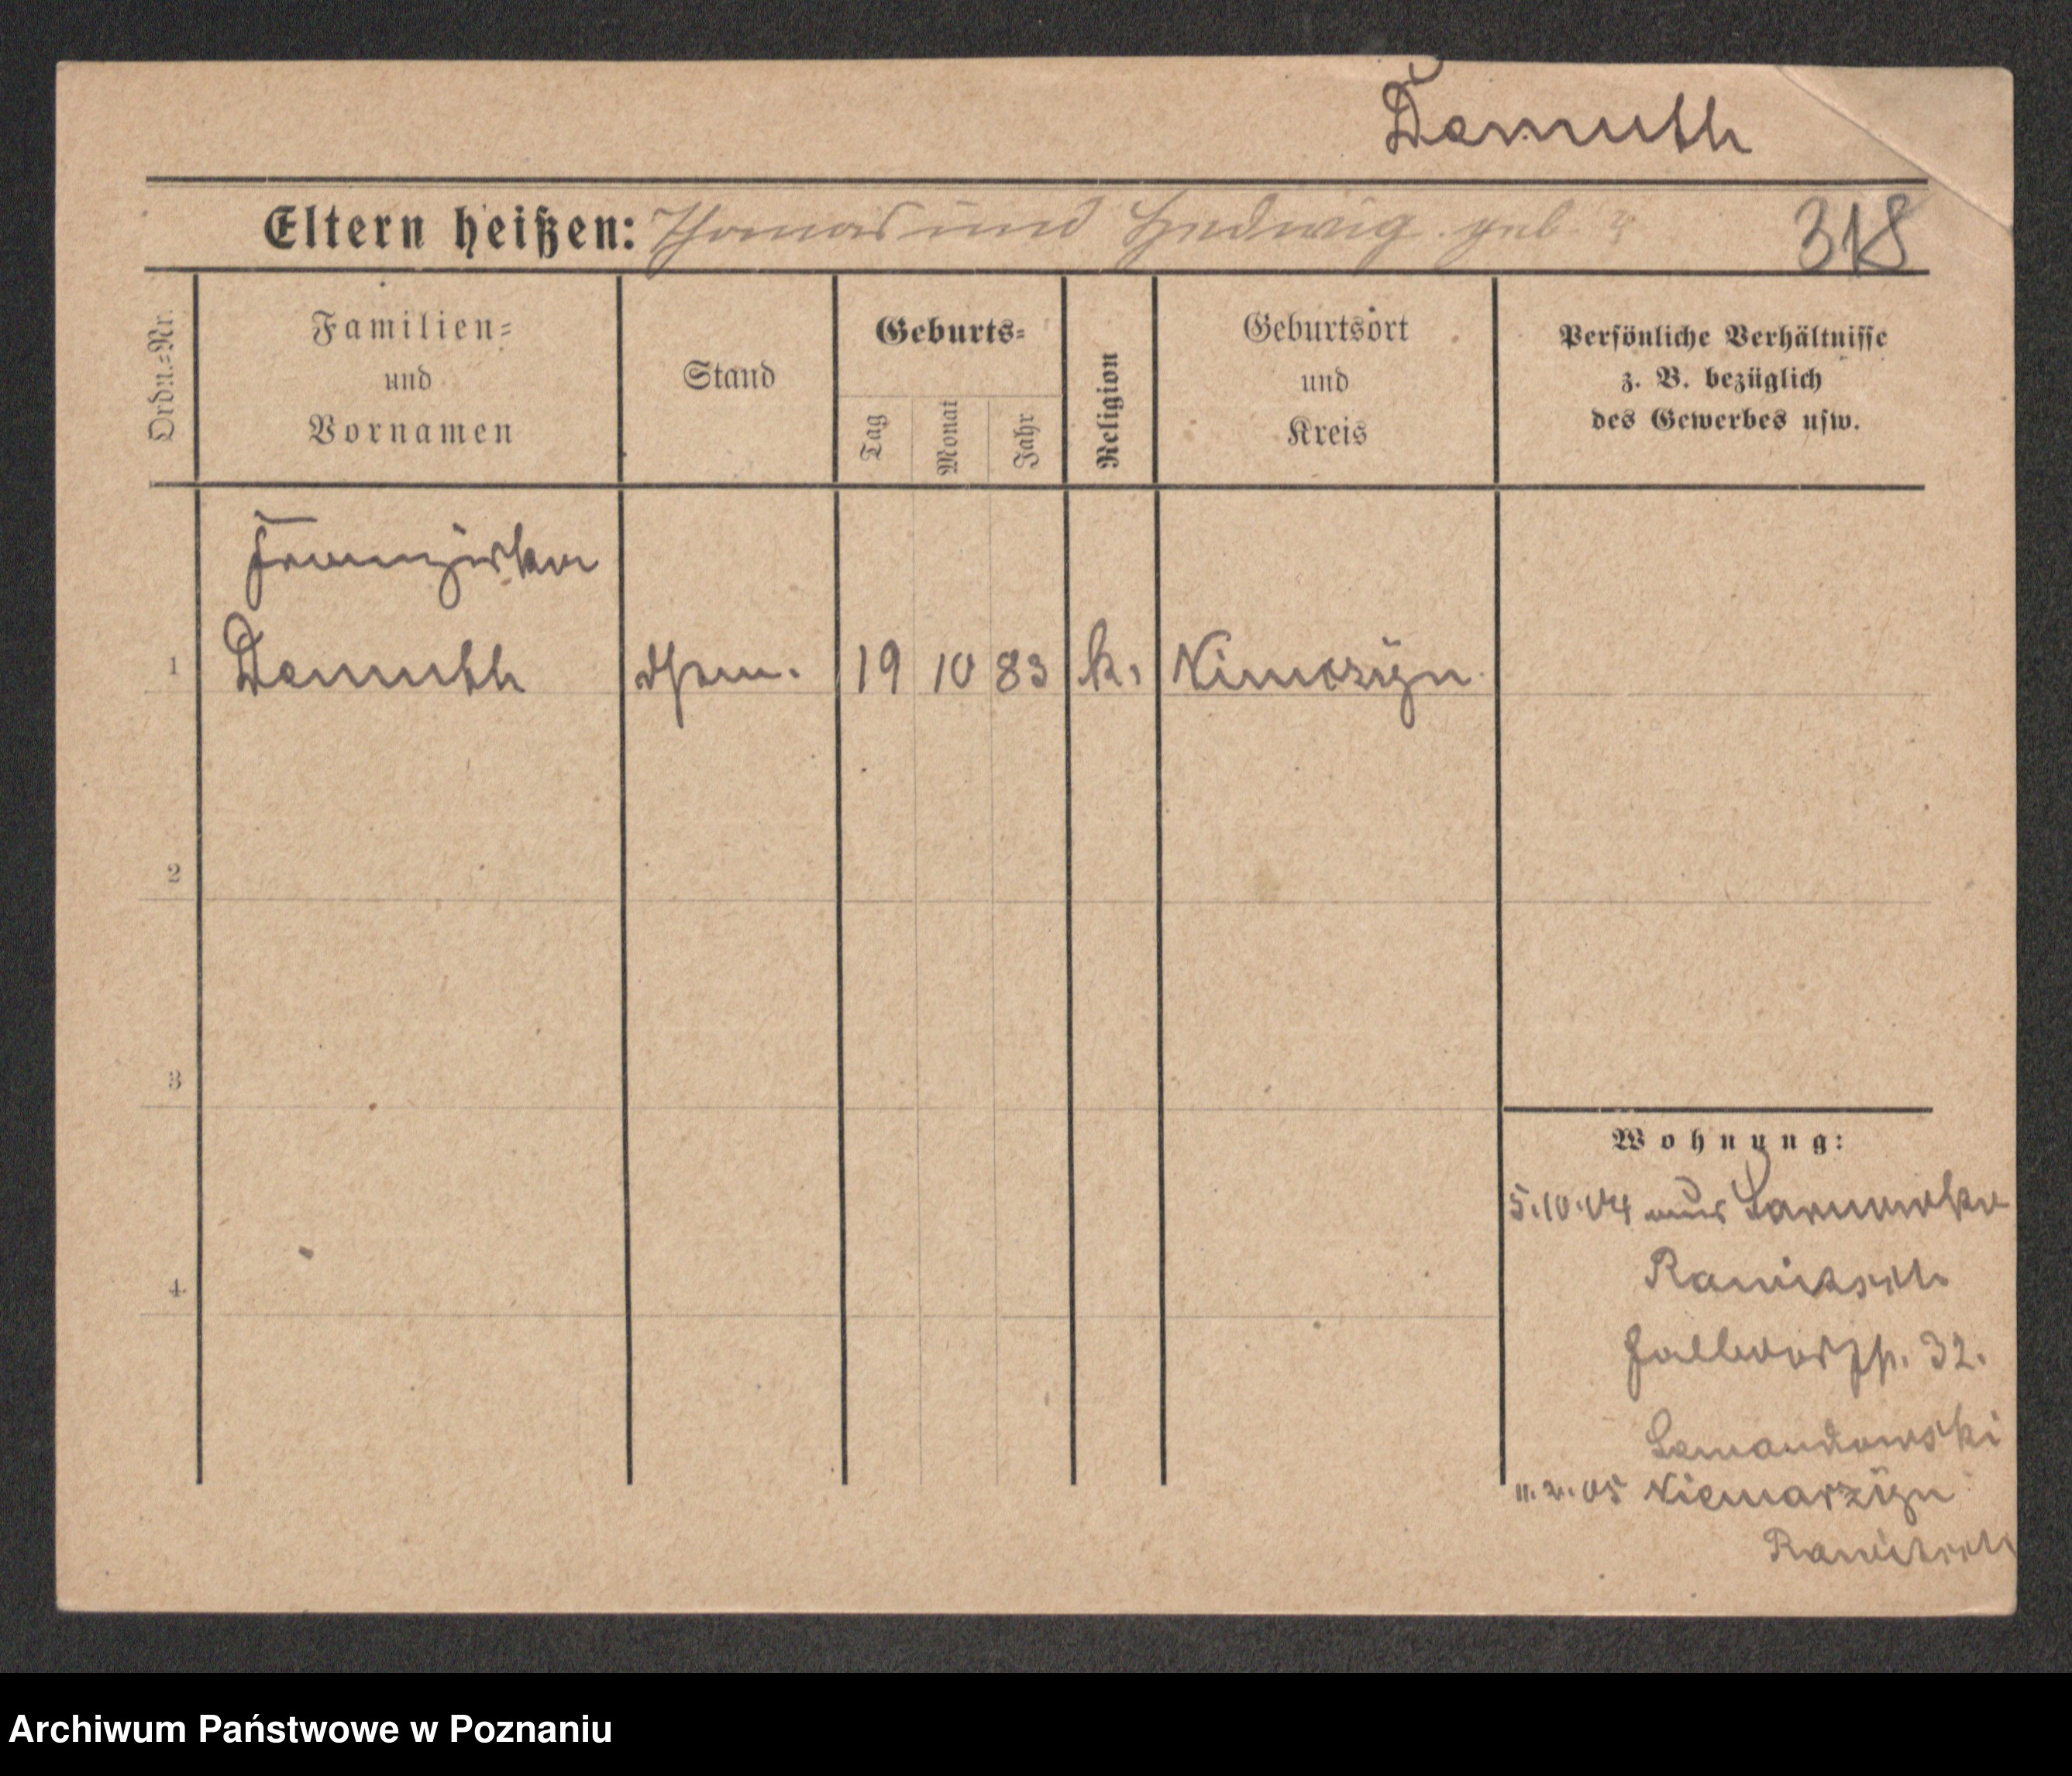 Demuth
Eltern heißen: Thomas und Hedwig geb. ?
318
Ordn.=Nr.
Familien=
und
Vornamen
Stand
Geburts=
Tag
Monat
Jahr
Religion
Geburtsort
und
Kreis
Persönliche Verhältnisse
z. B. bezüglich
des Gewerbes usw.
Franziska
1 Demuth 19 10 83 k.
2
3
4
Wohnung:
5.10.04 aus
Rawitsch
32.
Lewandowski
05 Niemarzyn
Rawitsch
Archiwum Państwowe w Poznaniu